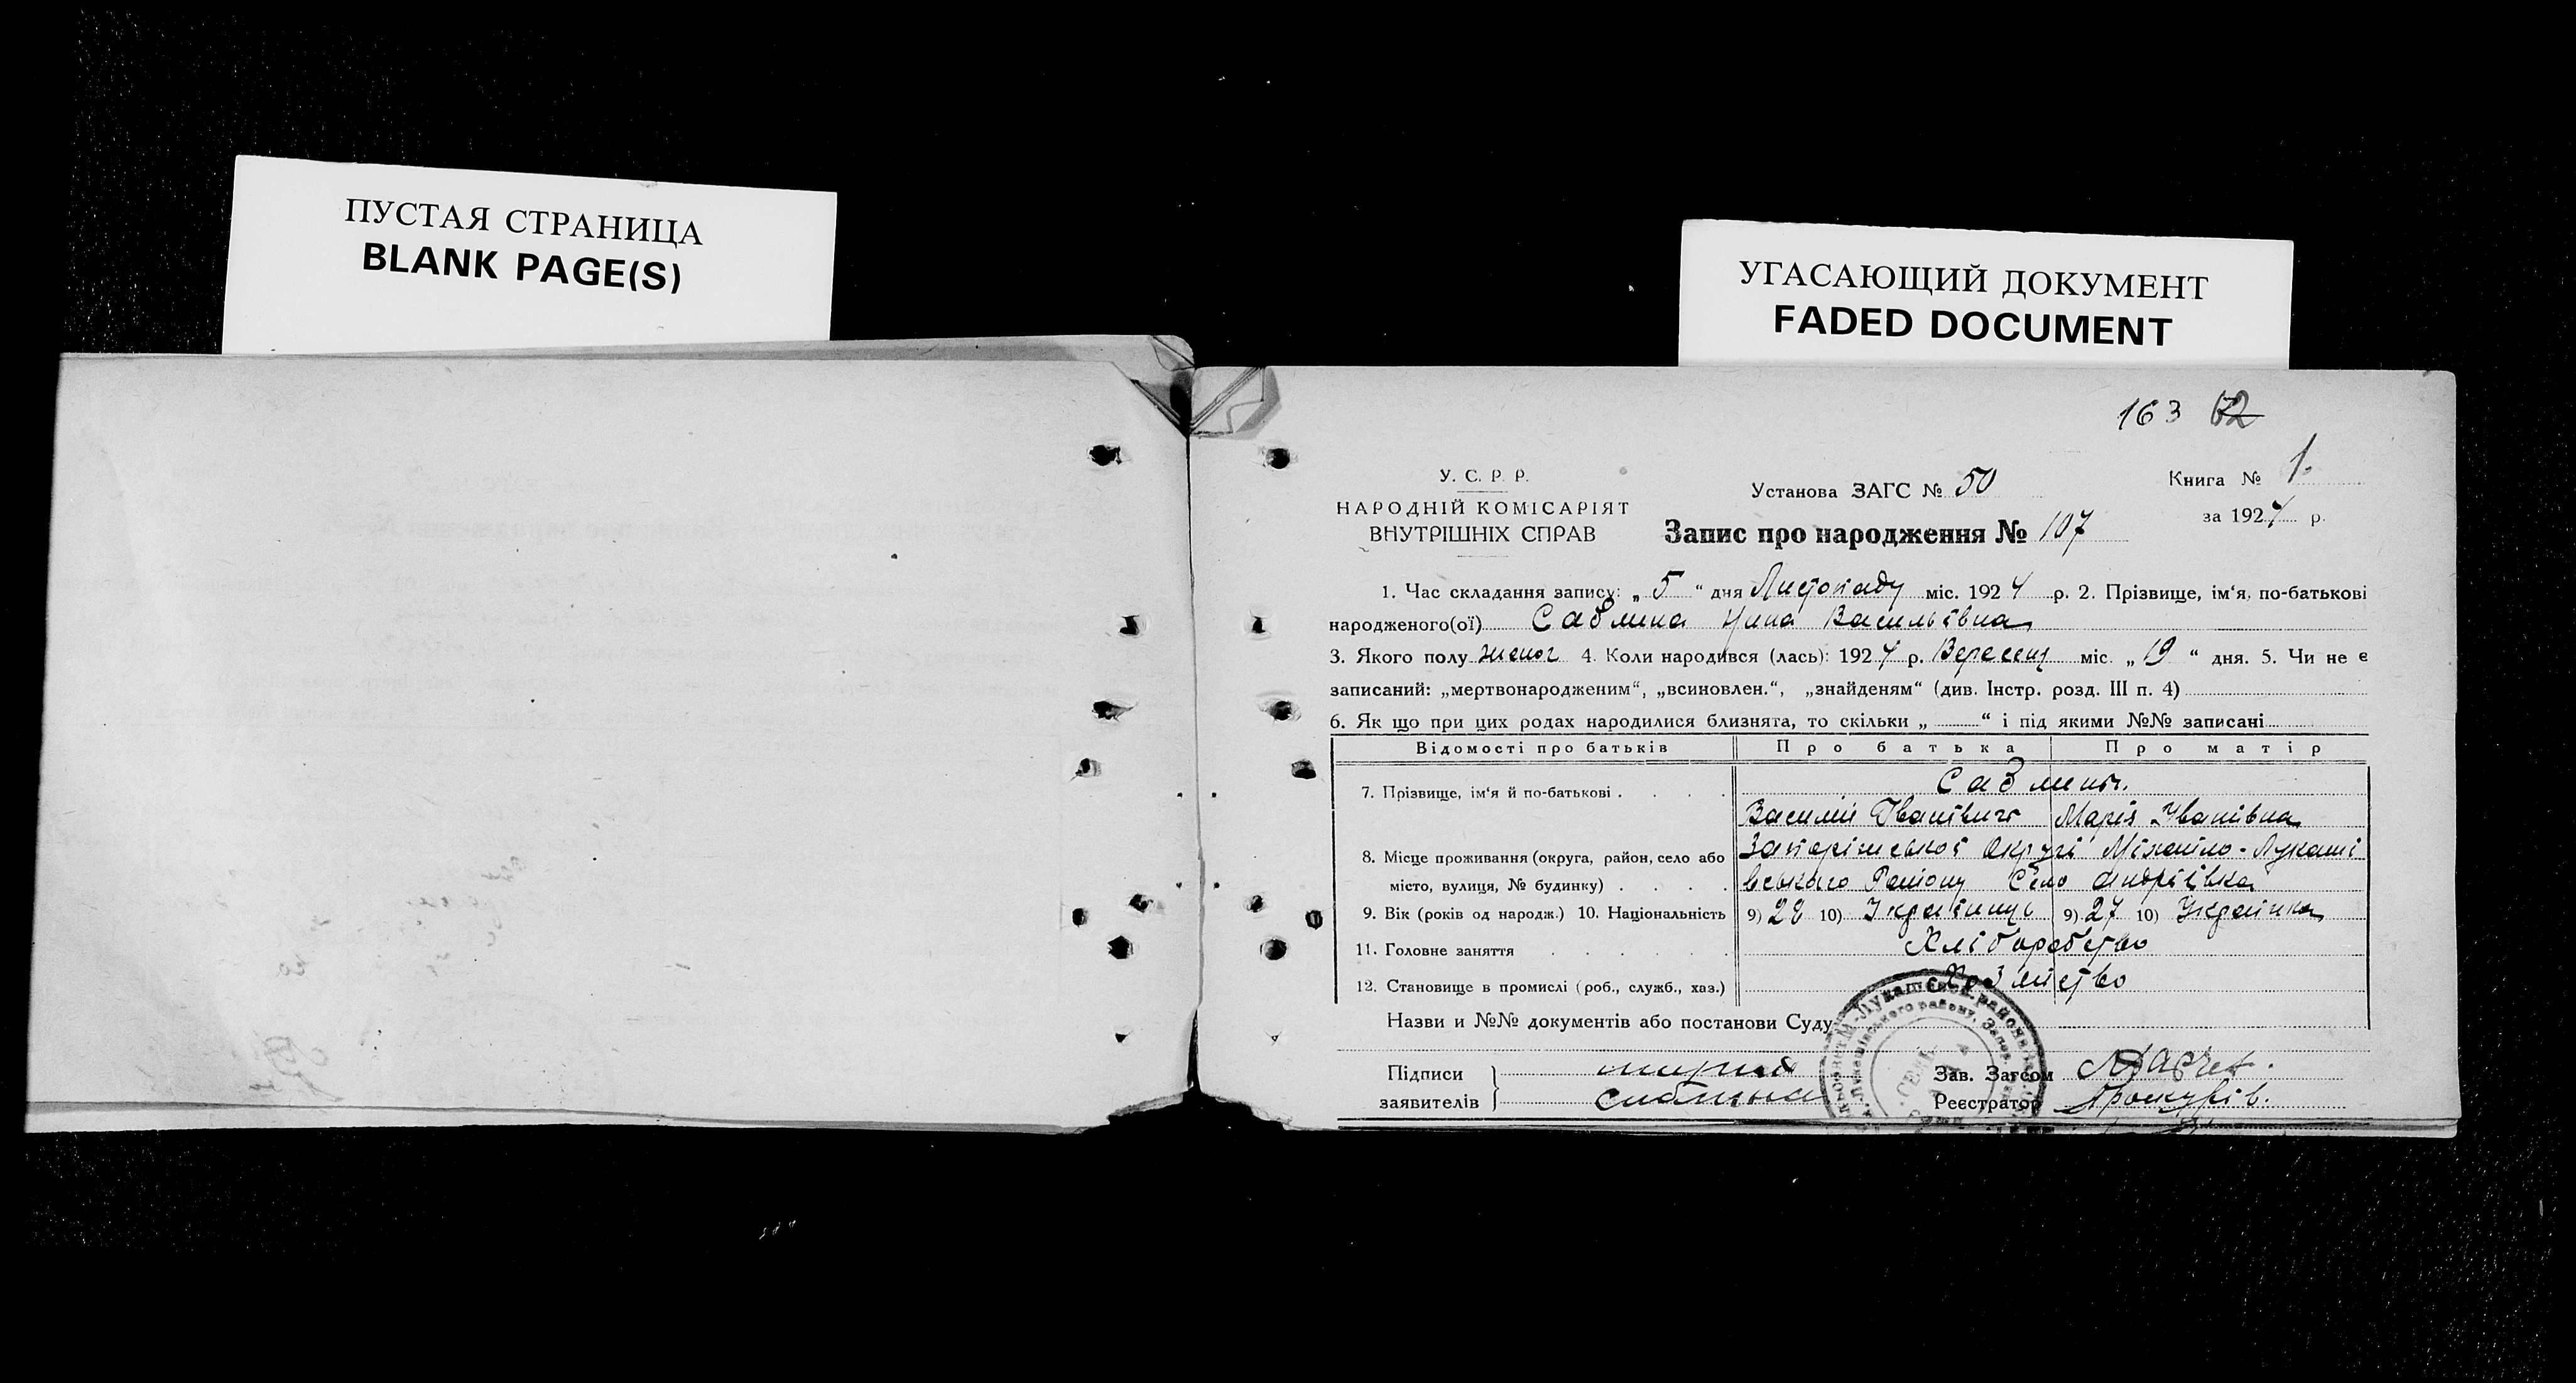 ПУСТАЯ СТРАНИЦА
BLANK PAGE(S)
УГАСАЮЩИЙ ДОКУМЕНТ
FADED DOCUMENT
163 62
У. С. Р. Р.
НАРОДНІЙ КОМІСАРІЯТ
ВНУТРІШНІХ СПРАВ
Установа ЗАГС № 50
Книга № 1.
за 1924 р.
Запис про народження № 107
1. Час складання запису: „ 5 “ дня Листопаду міс. 1924 р. 2. Прізвище, ім‘я, по-батькові
народженого(ої) Нина Васильівна
3. Якого полу женог 4. Коли народився (лась): 1924 р. Вересня міс. „ 19 “ дня. 5. Чи не є
записаний: „мертвонародженим“, „всиновлен.“, „знайденям“ (див. Інстр. розд. III п. 4)
6. Як що при цих родах народилися близнята, то скільки „ “ і під якими №№ записані
Відомості про батьків Про батька Про матір
7. Прізвище, ім‘я й по-батькові
Василій Іванівич Марія Иванівна
8. Місце проживання (округа, район, село або Запорізської Округі Міхаіло-Лукаші
місто, вулиця, № будинку) вського Район�у Село Андріівка
9. Вік (років од народж.) 10. Національність 9) 28 10) Українець 9) 27 10) Українка
11. Головне заняття Хліборобство
12. Становище в промислі (роб., служб., хаз.)
Назви и №№ документів або постанови Суду
Підписи
заявителів
Зав. Загсом
Реєстратор